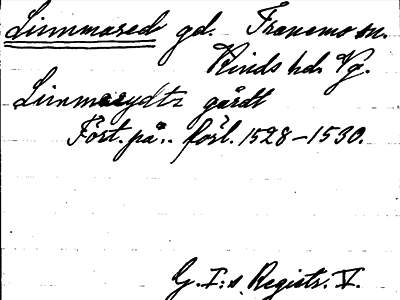 Limmared gd. Tranemo sn.
Kinds hd. Vg.
Limmarydtz gårdt
Fört. på.. förl. 1528-1530.
G. I:s Registr. V.